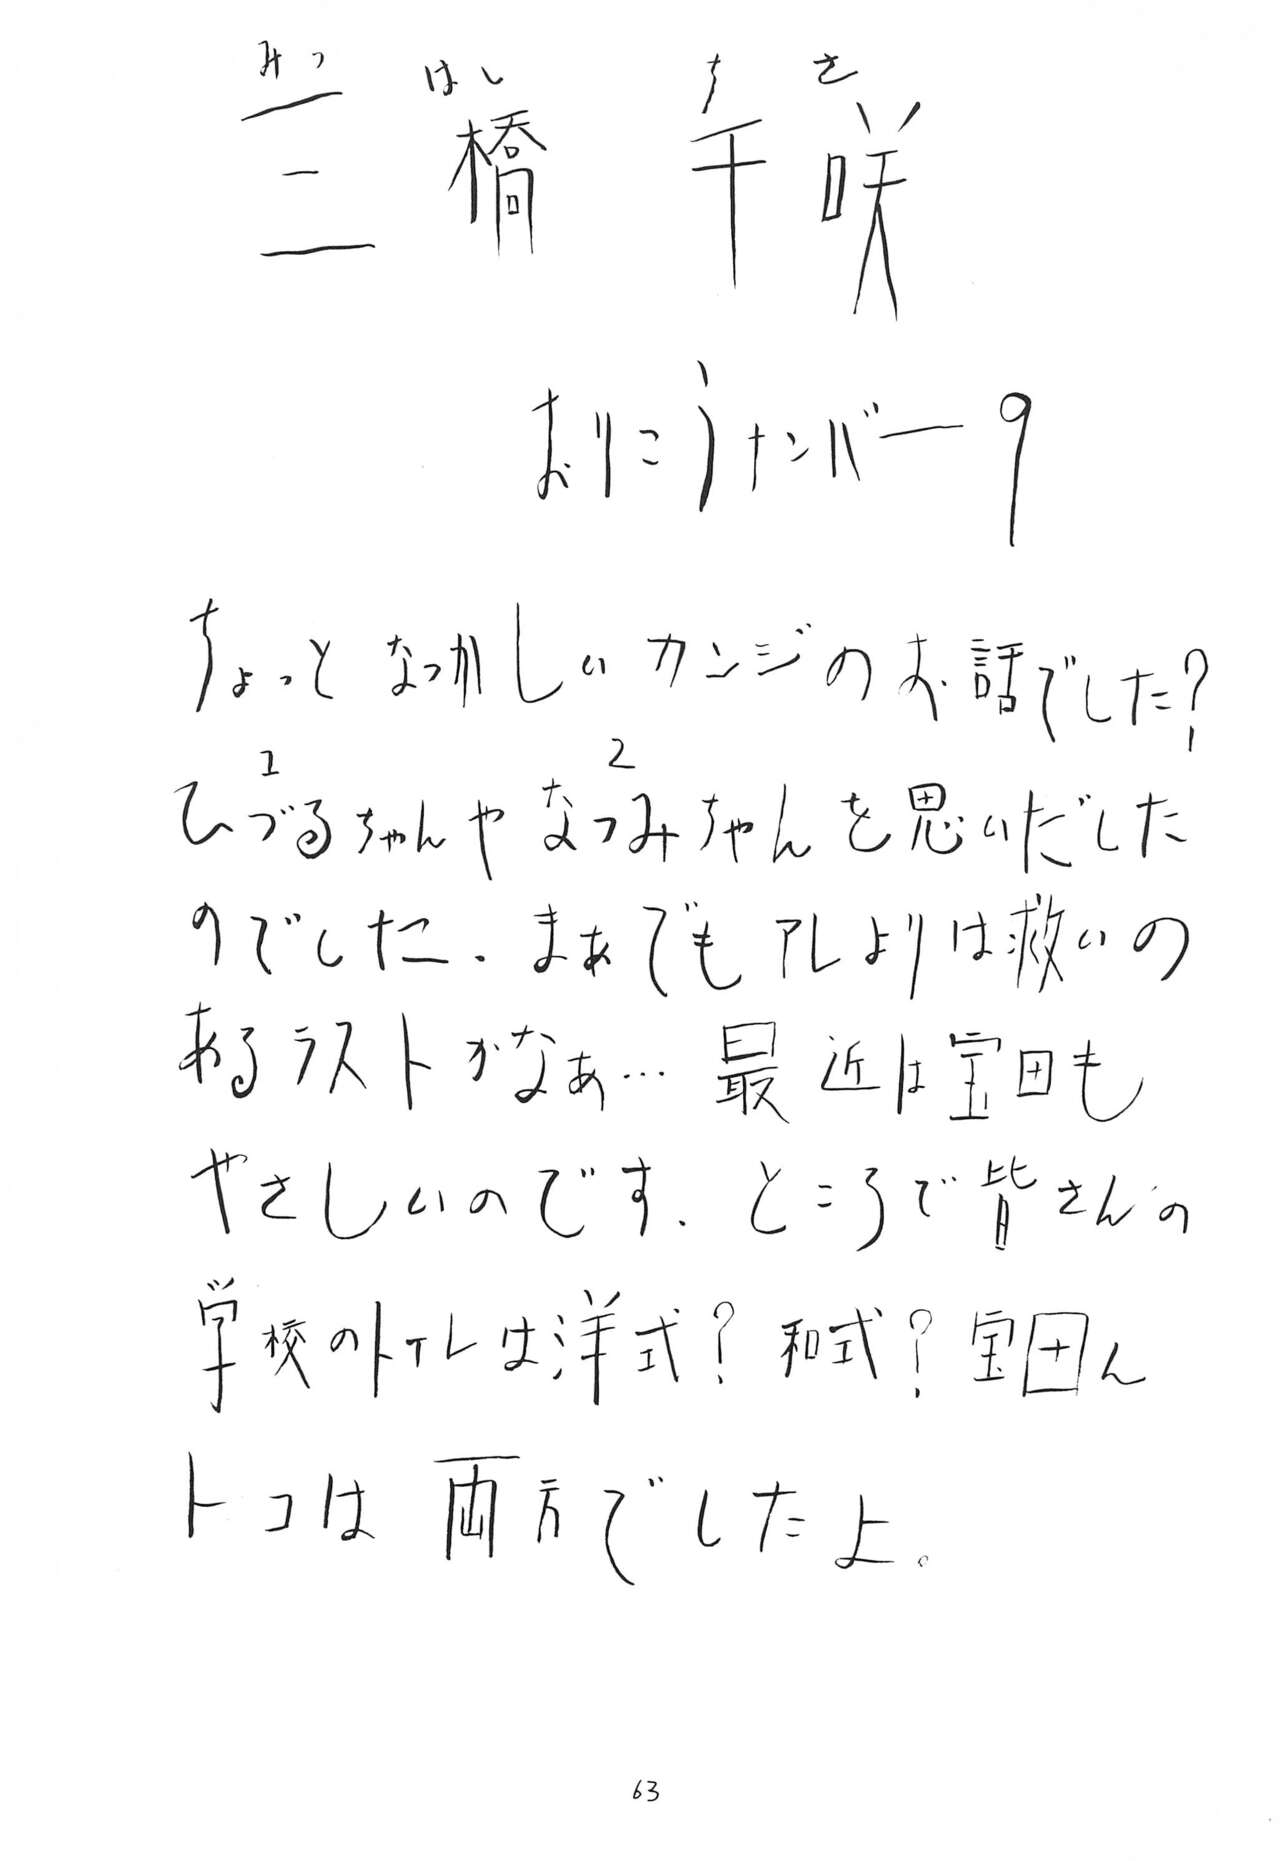 みつ はし ち さ
三橋 千咲
おりこうナンバー9
ちょっとなつかしいカンジのお話でした?
1 2
ひづるちゃんやなつみちゃんを思いだした
のでした.まぁでもアレよりは救いの
あるラストかなぁ…最近は宝田も
やさしいのです.ところで皆さんの
学校のトイレは洋式?和式?宝田ん
トコは両方でしたよ。
63